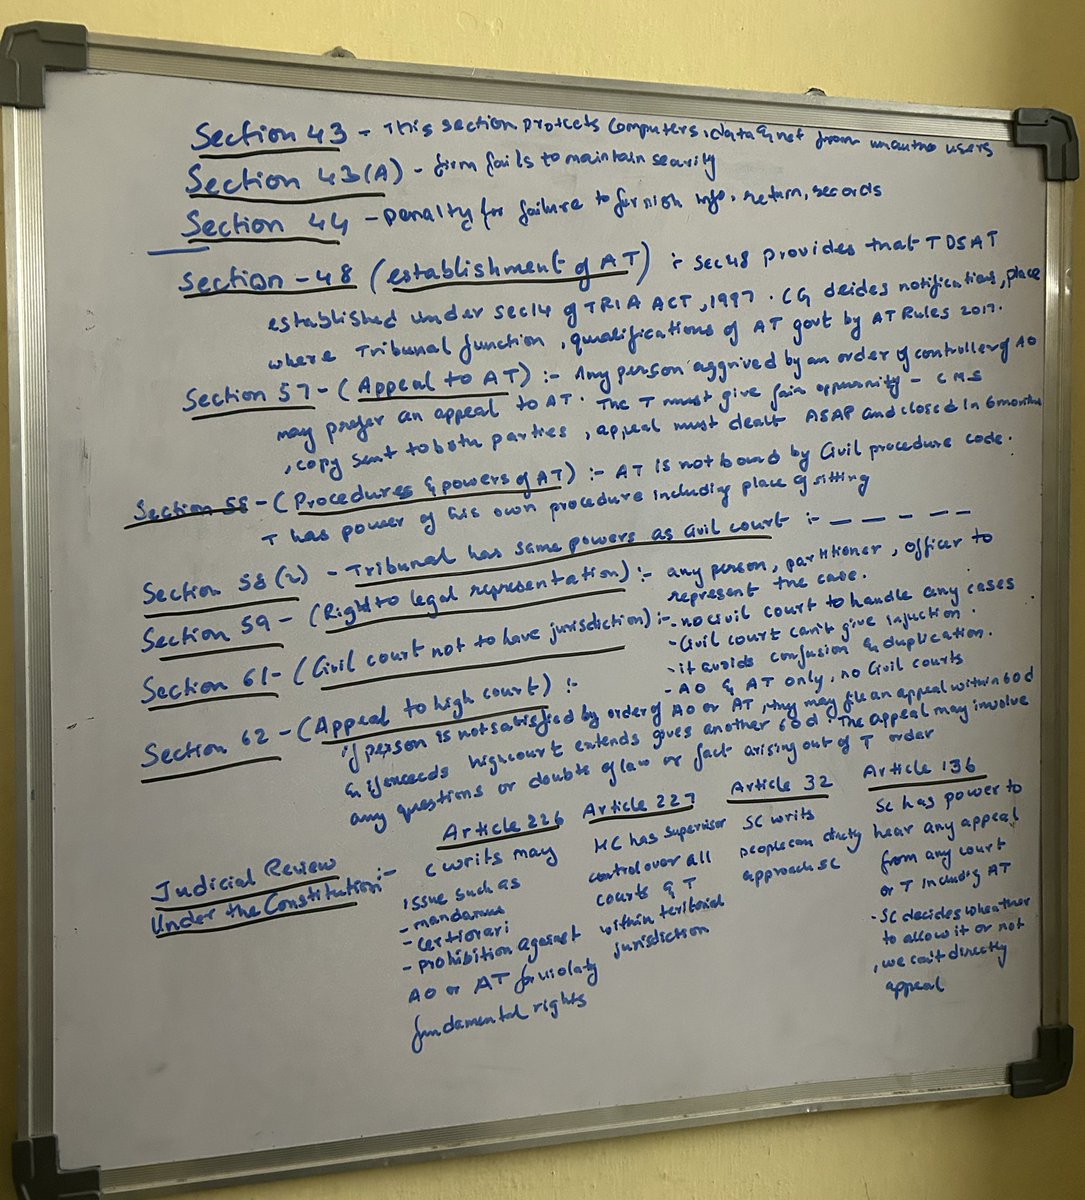 Section 43 - This section protects computers, data & net from unautho users
Section 43(A) - firm fails to maintain security
Section 44 - Penalty for failure to furnish info, return, records
Section - 48 (establishment of AT) :- Sec 48 provides that TDSAT
established under sec 14 of TRIA ACT, 1997. CG deides notifications, place
where Tribunal function, qualifications of AT govt by AT Rules 2017.
Section 57 - (Appeal to AT) :- Any person aggrived by an order of controller of AO
may prefer an appeal to AT. The T must give fair oppurunity -
, copy sent to both parties, appeal must dealt ASAP and closed in 6 months
Section 58 - (Procedures & powers of AT) :- AT is not bound by Civil procedure code.
T has power of his own procedure including place of sitting
Section 58(2) - Tribunal has same powers as Civil court :- - - - - -
Section 59 - (Right to legal representation) :- any person, partitioner, officer to
represent the case.
Section 61 - (Civil court not to have jurisdiction) :- - no civil court to handle any cases
- Civil court can't give injuction.
- it avoids confusion & duplication.
- AO & AT only, no Civil courts
Section 62 - (Appeal to high court) :-
if person is not satisfied by order of AO or AT, they may file an appeal within 60 d
& if exceeds highcourt extends gives another 60 d. The appeal may involve
any questions or doubts of law or fact arising out of T order
Judicial Review
Under the Constitution :-
Article 226
C writs may
issue such as
- mandamus
- certiorari
- prohibition against
AO or AT for violaty
fundamental rights
Article 227
HC has supervisor
control over all
courts & T
within teritorial
jurisdiction
Article 32
SC writs
people can dircty
approach SC
Article 136
SC has power to
hear any appeal
from any court
or T including AT
- SC decides wheather
to allow it or not
, we can't directly
appeal